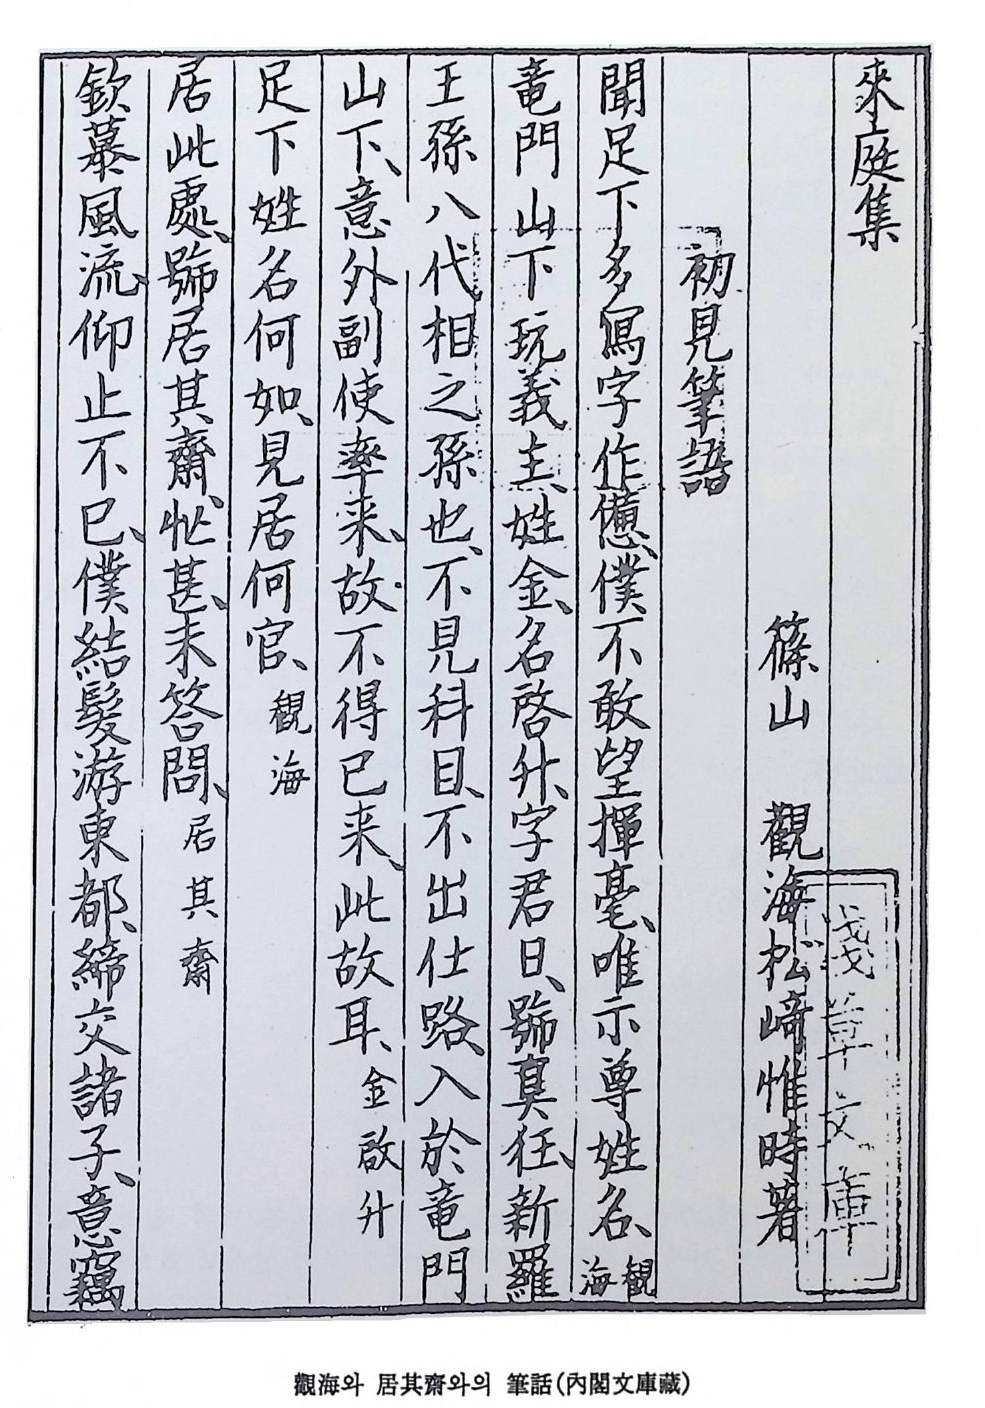 來庭集
篠山 觀海松﨑惟時著
初見筆語
聞足下多寫字作憊、僕不敢望揮毫、唯示尊姓名、觀海
竜門山下玩義主、姓金、名啓升、字君日、號真狂、新羅
王孫八代相之孫也、不見科目、不出仕路、入於竜門
山下、意外副使率来、故不得已来、此故耳、金啟升
足下姓名何如、見居何官、觀海
居此處、號居其齋、忙甚、未答問、居其齋
欽慕風流、仰止不已、僕結髮游東都、締交諸子、意竊
淺草文庫
觀海와 居其齋와의 筆話(內閣文庫藏)